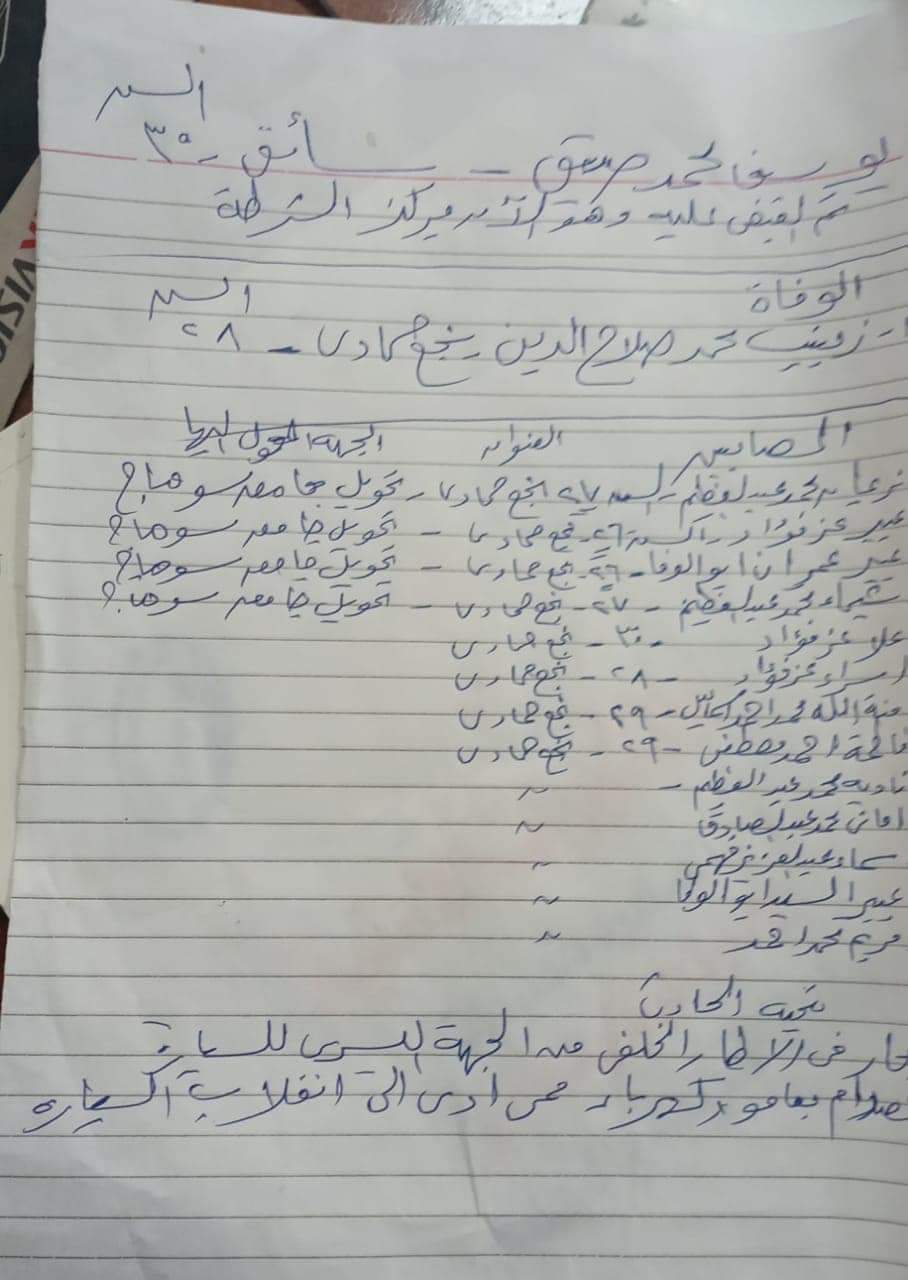 السن
يوسف محمد صديق - سائق - ٣٥
تم القبض عليه وهو الآن بمركز الشرطة
الوفاة السن
١- زينب محمد صلاح الدين - نجع حمادى - ٢٨
المصابين العنوان الجهة المحول إليها
محمد عبد العظيم - السن ٢٧ نجع حمادى - تحويل جامعة سوهاج
عبير عز فؤاد - السن ٢٦ - نجع حمادى - تحويل جامعة سوهاج
عبير عمران ابو الوفا - ٢٦ - نجع حمادى - تحويل جامعة سوهاج
شيماء محمد عبد العظيم - ٢٧ - نجع حمادى - تحويل جامعة سوهاج
علا عز فؤاد - ٣٠ - نجع حمادى
اسراء عز فؤاد - ٢٨ - نجع حمادى
منة الله محمد احمد - ٢٩ - نجع حمادى
فاطمة احمد مصطفى - ٢٩ - نجع حمادى
نادية محمد عبد العظيم - "
امانى محمد عبد الصادق "
سماء عبد العزيز فهمى "
عبير السيد ابو الوفا "
مريم محمد احمد "
نتيجة الحادث
فى الاطار الخلفى من الجهة اليسرى للسيارة
بعامود كهرباء مما أدى الى انقلاب السيارة
VISIO